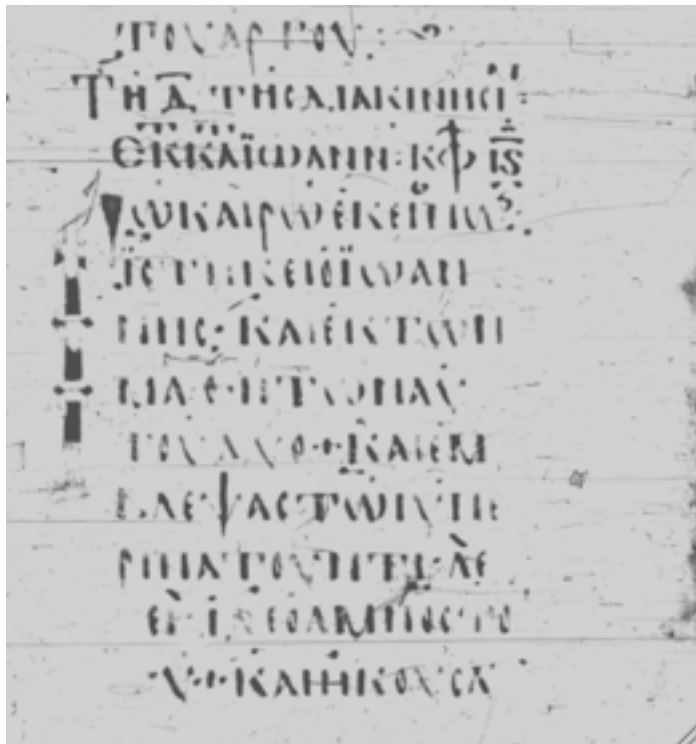 ΤΟΥΑΡΓΟΥ:
ΤΗ Δ̅ ΤΗC ΔΙΑΚΙΝΗCΙ:
ΕΚ Κ ΑΪΩΑΝΝ: ΚΦ ΙS
Τῶ ΚΑΙΡῶ ἘΚΕΙΝω:
ΙCΤΗΚΕΙ Ο ΪΩΑΝ
ΝΗC· ΚΑΙ ΕΚ ΤΩΝ
ΜΑΘΗΤΩΝ ΑΥ
ΤΟΥ ΔΥΟ + ΚΑΙ ΕΜ
ΒΛΕΨΑC ΤΩ ΙΥ ΠΕ
ΡΙΠΑΤΟΥΝΤΙ ΛΕ
ΙΔΕ Ο ΑΜΝΟC ΤΟ
Υ + ΚΑΙ ΗΚΟΥCΑ